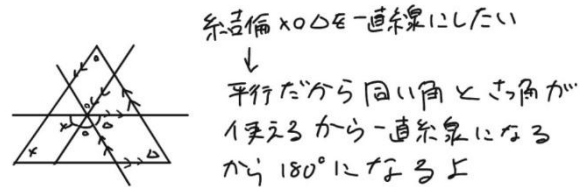 結論×○△を一直線にしたい
↓
平行だから同い角とさっ角が
使えるから一直線になる
から180°になるよ
○
×
△
×
○
△